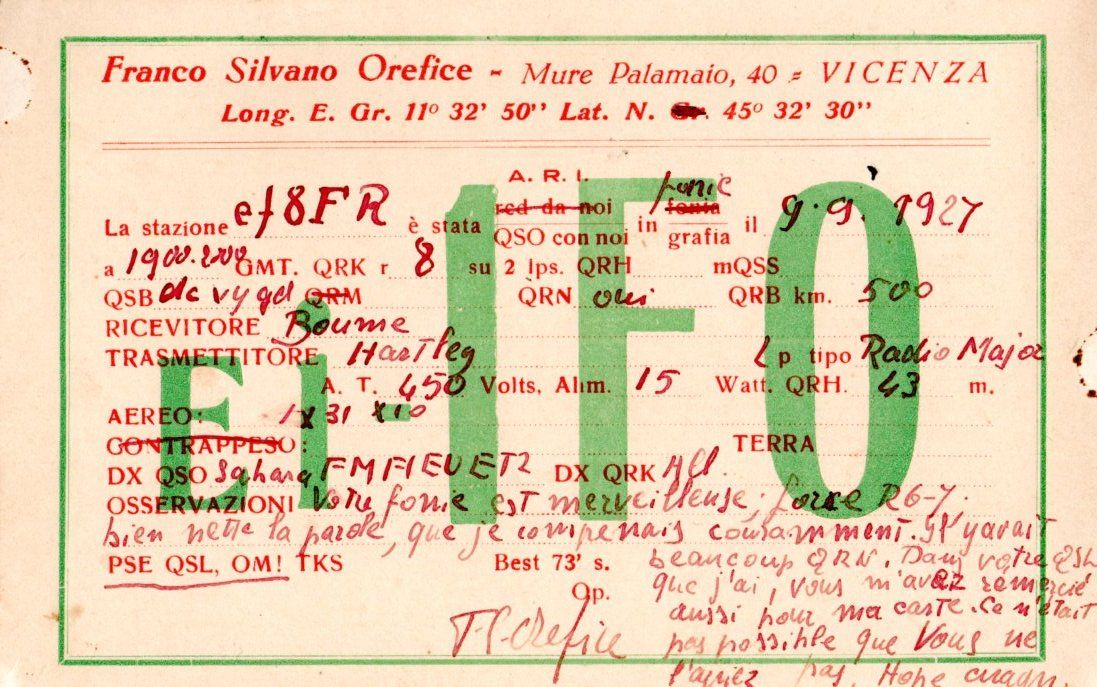 Franco Silvano Orefice - Mure Palamaio, 40 = VICENZA
Long. E. Gr. 11º 32' 50'' Lat. N. Gr. 45º 32' 30''
A. R. I.
La stazione ef8FR è stata red da noi QSO con noi in fonia grafia fonie il 9.9.1927
a 1900.2000 GMT. QRK r 8 su 2 lps. QRH mQSS
QSB dc QRM QRN oui QRB km. 500
RICEVITORE Bourne
TRASMETTITORE Hartley Lp tipo Radio Major
A. T. 450 Volts, Alim. 15 Watt. QRH. 43 m.
AEREO: 1 x 31 x 10
CONTRAPPESO: TERRA
DX QSO Sahara FMFIEVETZ DX QRK All
OSSERVAZIONI Votre fonie est merveilleuse; force R6-7.
bien nette la parole, que je comprenais couramment. Il y avait
beaucoup QRN. Dans votre QSL
que j'ai, vous m'avez remercié
aussi pour ma carte. Ce n'était
pas possible que vous ne
l'ayiez pas. Hope
PSE QSL, OM! TKS Best 73' s.
Op.
Orefice
Ei-1FO